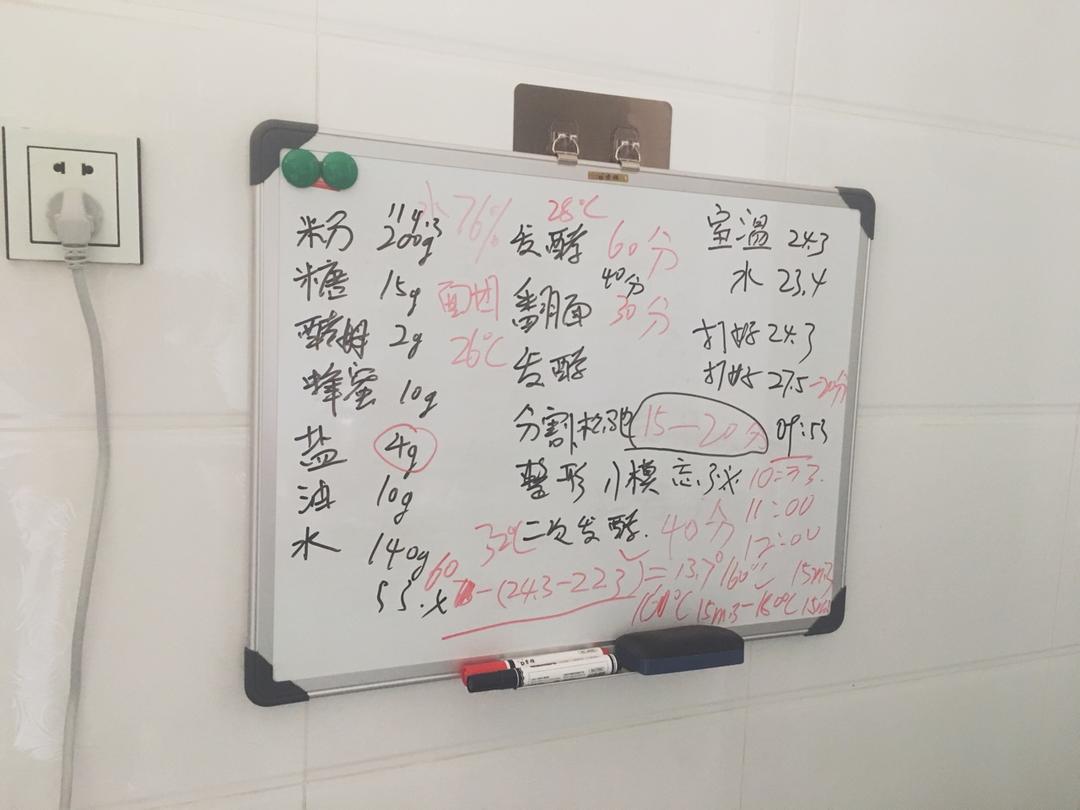 水76%
粉 200g
糖 15g
面团
26℃
酵母 2g
蜂蜜 10g
盐 4g
油 10g
水 140g
53.x
28℃
发酵 60分
40分
翻面 30分
发酵
分割松弛 15—20分 09:53
整形 小模 忘了.x. 10:33.
32℃ 二次发酵. 40分 11:00
12:00
室温 24.3
水 23.4
打好 24.3
打好 27.5—20分
60-(24.3-22.3)=13.7° 160℃
160℃